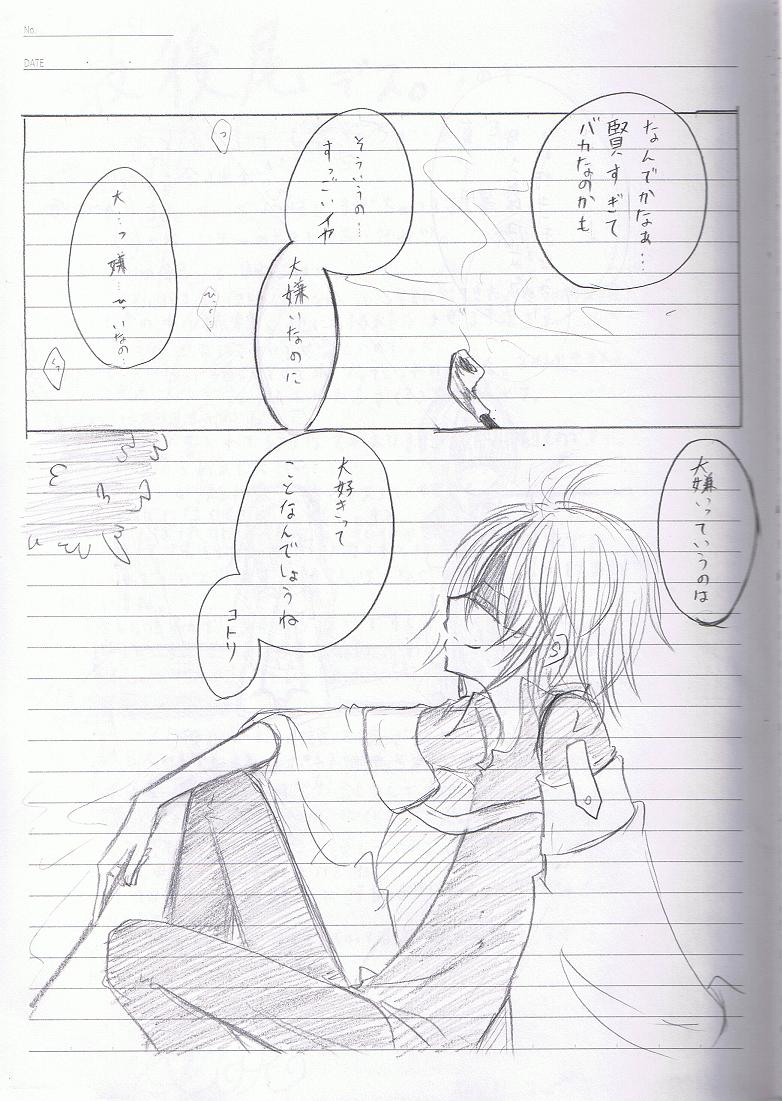 No.
DATE
なんでかなぁ…
賢すぎて
バカなのかも
そういうの…
すっごいイヤ
大嫌いなのに
っ
大…っ嫌…ひっいなの…
ひっく
くっ
大嫌いっていうのは
大好きって
ことなんでしょうね
コトリ